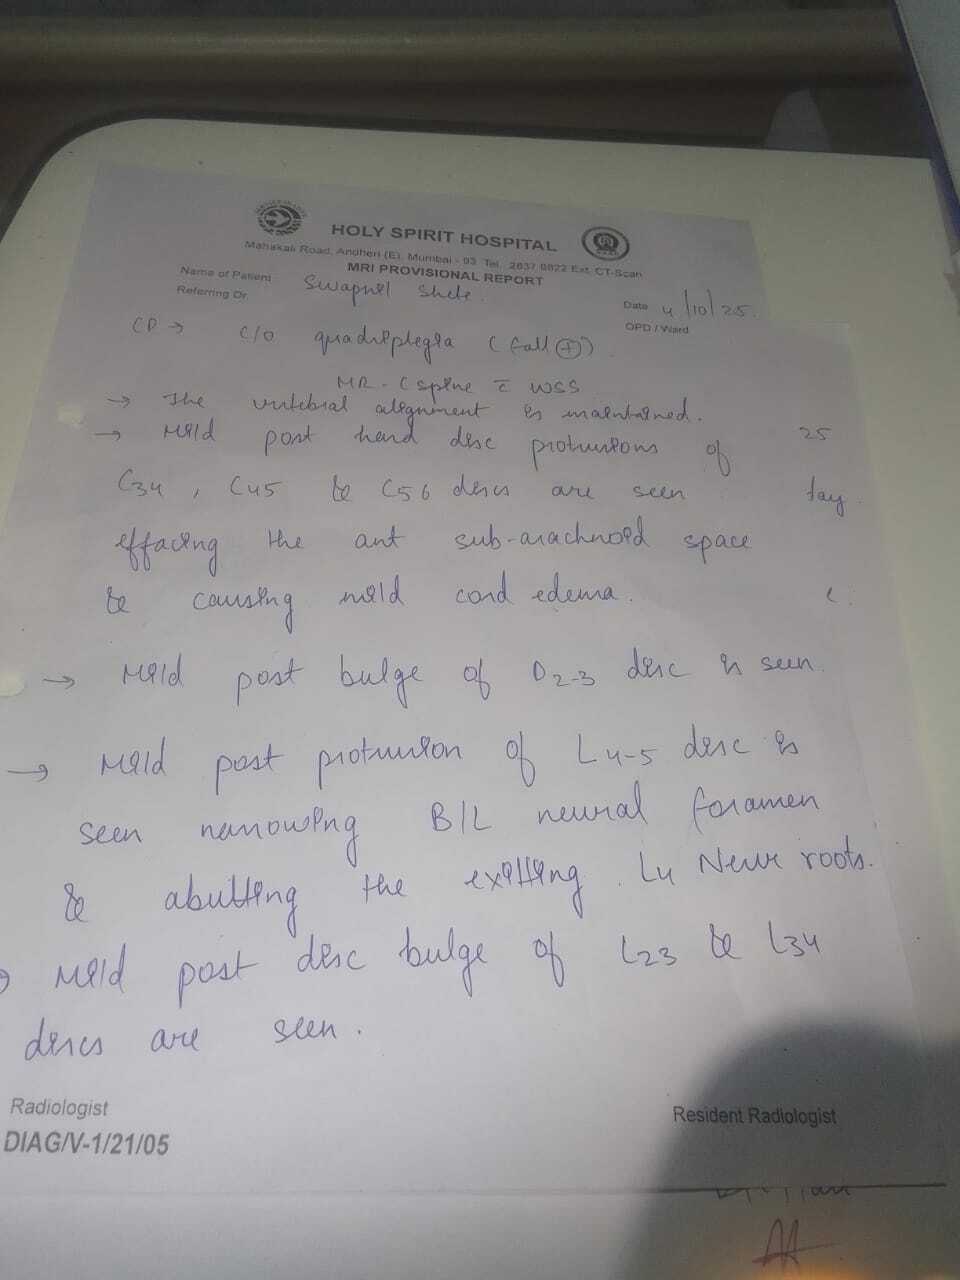 HOLY SPIRIT HOSPITAL
Mahakali Road, Andheri (E), Mumbai - 93 Tel. 2837 0822 Ext. CT-Scan
MRI PROVISIONAL REPORT
Name of Patient Swapnil Shete.
Referring Dr.
Date 4/10/25.
OPD / Ward
CD → c/o quadriplegia (fall ⊕)
MR - C spine c̄ WSS
→ The vertebral alignment is maintained.
→ Mild post hard disc protrusions of
C34, C45 & C56 discs are seen
effacing the ant sub-arachnoid space
& causing mild cord edema.
→ Mild post bulge of D2-3 disc is seen.
→ Mild post protrusion of L4-5 disc is
seen narrowing B/L neural foramen
& abutting the exiting L4 Nerve roots.
→ Mild post disc bulge of L23 & L34
discs are seen.
25
tay.
Radiologist
Resident Radiologist
DIAG/V-1/21/05